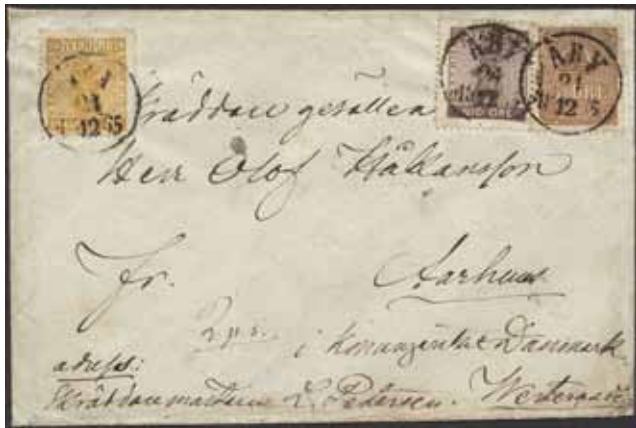 ÅBY
24
12
ÅBY
21
12 65
21
12 65
Skräddare gesällen
Herr Olof Håkansson
Fr.
Aarhuus
i Konungariket Danmark
adress:
Skräddaremästaren L. Petersen. Westergade